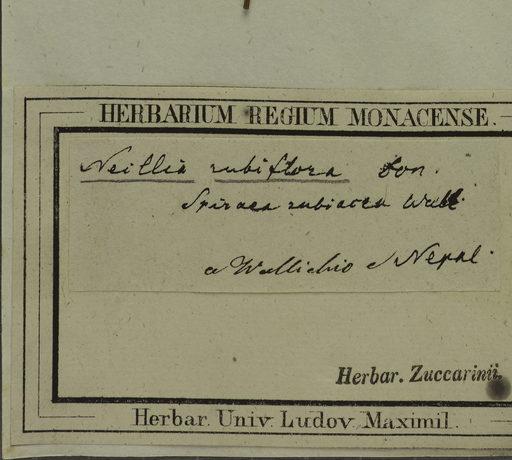 HERBARIUM REGIUM MONACENSE.
Neillia rubiflora Don.
Spiraea rubiacea Wall.
a Wallichio e Nepal.
Herbar. Zuccarinii.
Herbar. Univ. Ludov. Maximil.